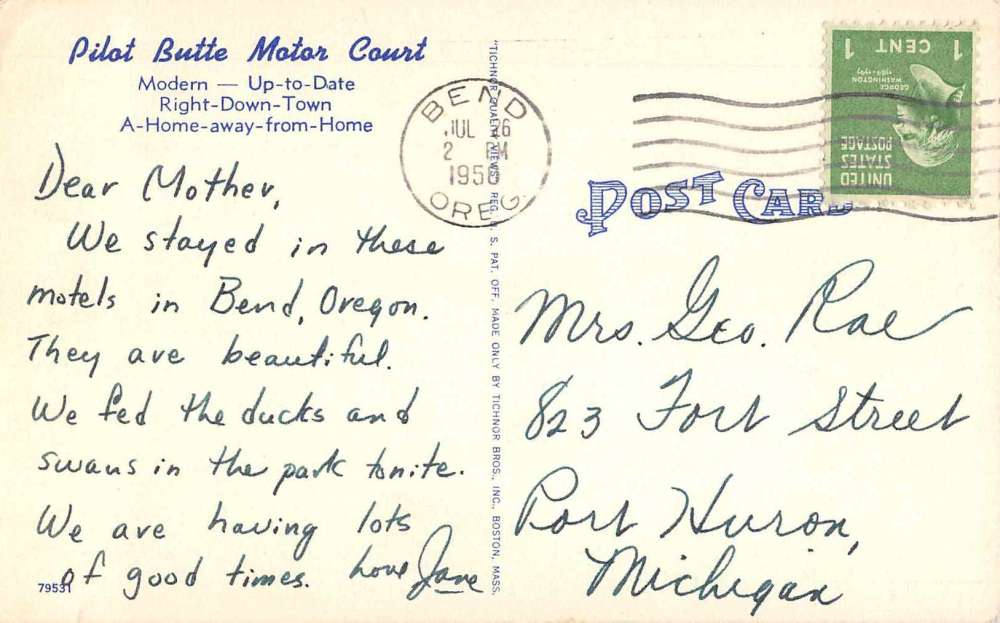 Pilot Butte Motor Court
Modern — Up-to-Date
Right-Down-Town
A-Home-away-from-Home
Dear Mother,
We stayed in these
motels in Bend, Oregon.
They are beautiful.
We fed the ducks and
swans in the park tonite.
We are having lots
of good times. Love Jane
79531
"TICHNOR QUALITY VIEWS," REG. U. S. PAT. OFF. MADE ONLY BY TICHNOR BROS., INC., BOSTON, MASS.
BEND
JUL 26
2 PM
1950
OREG.
UNITED
STATES
POSTAGE
GEORGE
WASHINGTON
1789-1797
1 CENT 1
POST CARD
Mrs. Geo. Rae
823 Fort Street
Port Huron,
Michigan